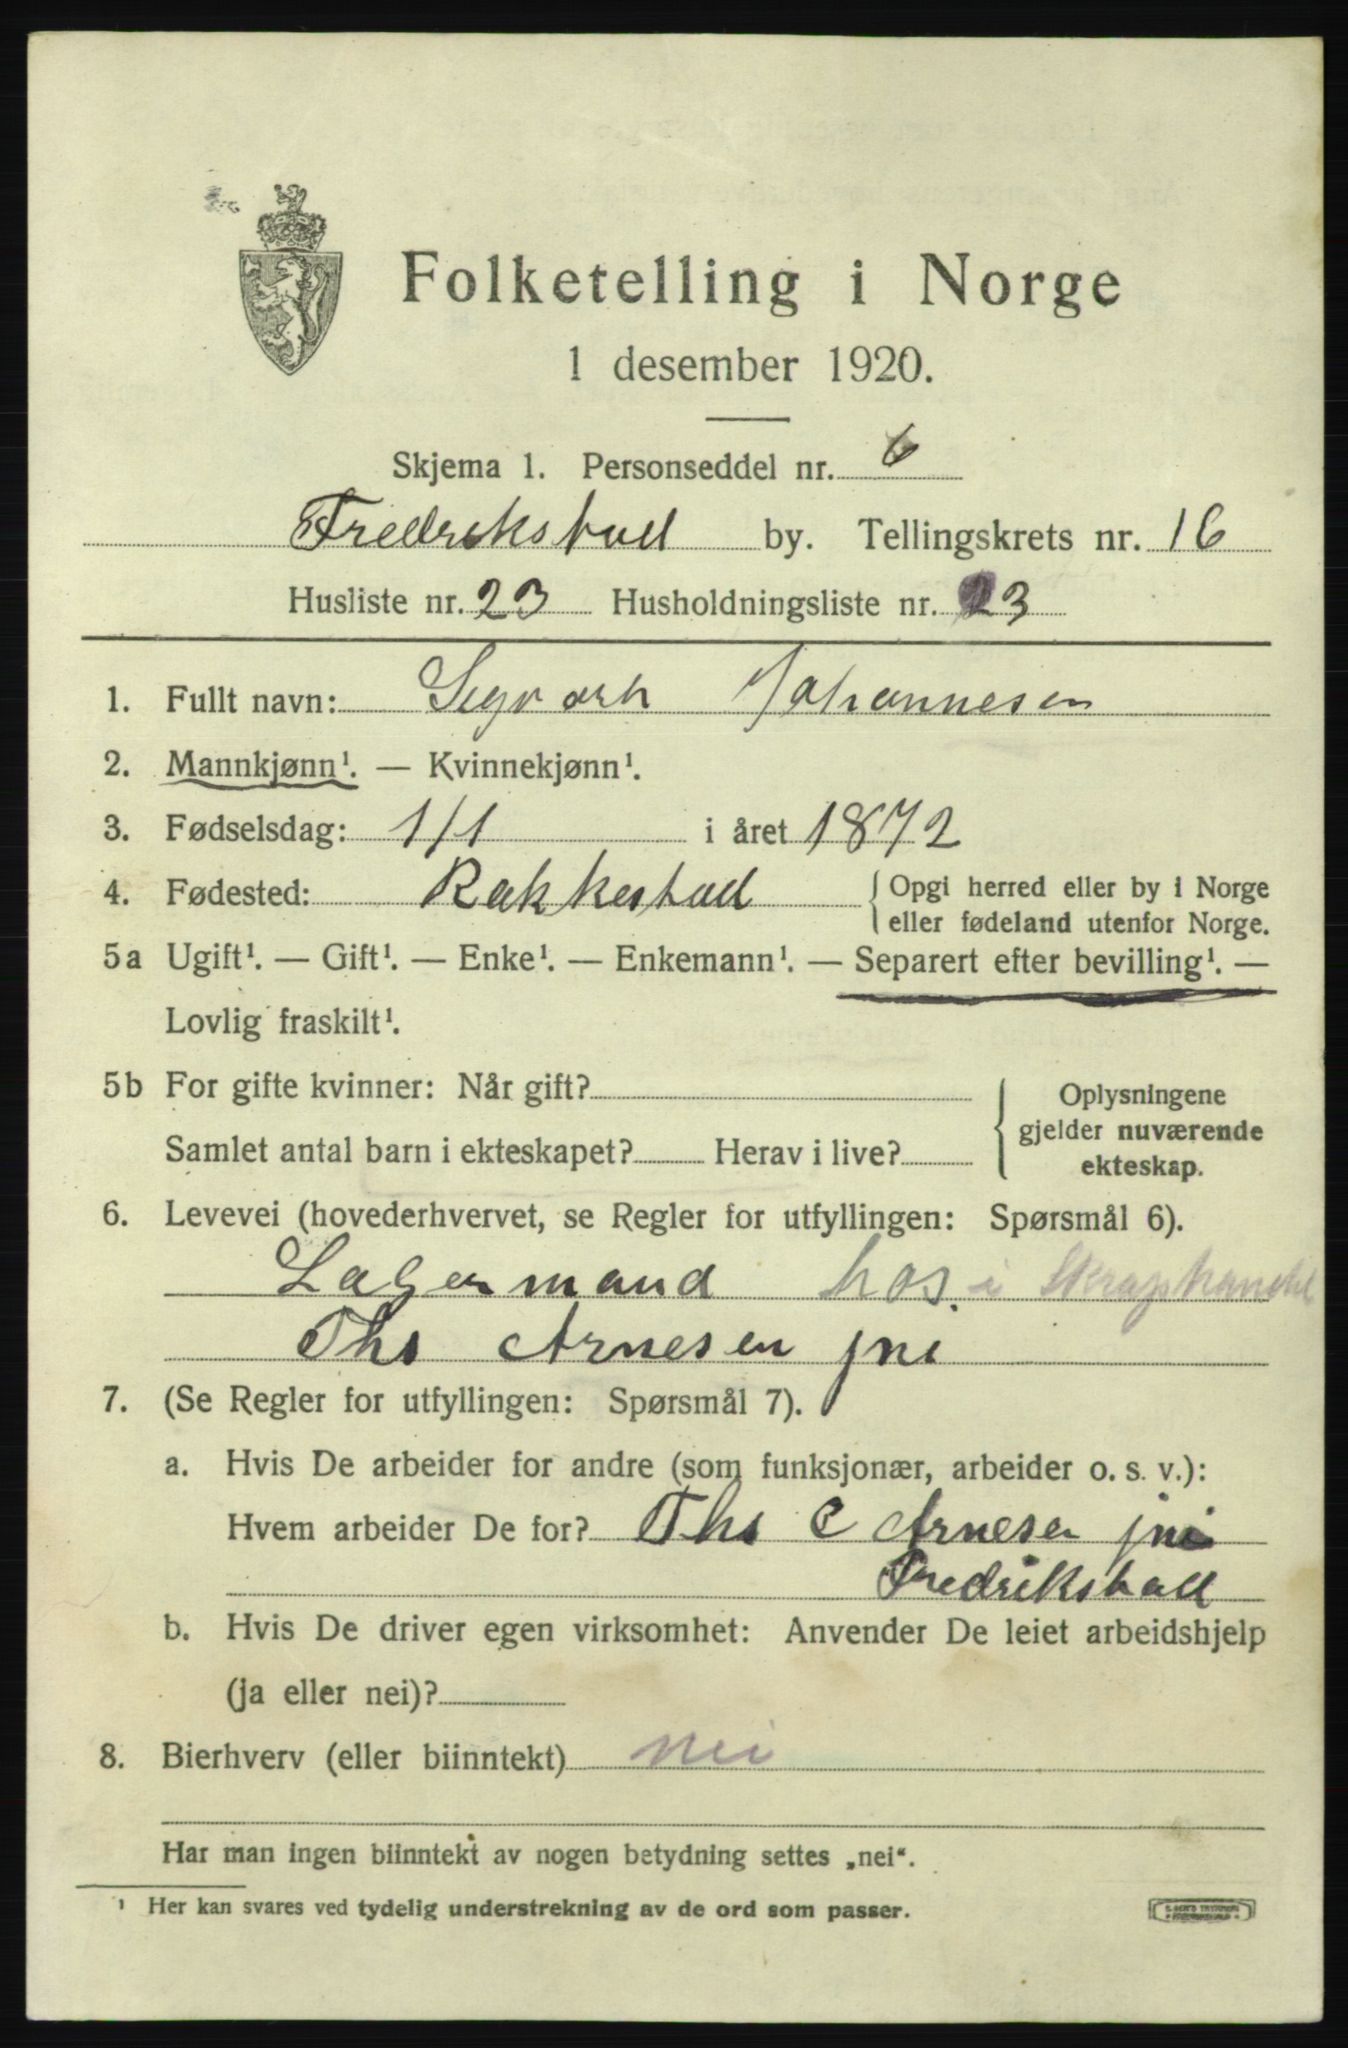 Folketelling i Norge
1 desember 1920.
Skjema 1. Personseddel nr. 6
Fredrikstad by. Tellingskrets nr. 16
Husliste nr. 23 Husholdningsliste nr. 23
1. Fullt navn: Sigvart Johannesen
2. Mannkjønn¹. — Kvinnekjønn¹.
3. Fødselsdag: 1/1 i året 1872
4. Fødested: Rakkestad { Opgi herred eller by i Norge
eller fødeland utenfor Norge.
5a Ugift¹. — Gift¹. — Enke¹. — Enkemann¹. — Separert efter bevilling¹. —
Lovlig fraskilt¹.
5b For gifte kvinner: Når gift?
Samlet antal barn i ekteskapet? Herav i live?
Oplysningene
gjelder nuværende
ekteskap.
6. Levevei (hovederhvervet, se Regler for utfyllingen: Spørsmål 6).
Lagermand hos. i Skraphandel
Ths Arnesen jni
7. (Se Regler for utfyllingen: Spørsmål 7).
a. Hvis De arbeider for andre (som funksjonær, arbeider o. s. v.):
Hvem arbeider De for? Ths C Arnesen jni
Fredrikstad
b. Hvis De driver egen virksomhet: Anvender De leiet arbeidshjelp
(ja eller nei)?
8. Bierhverv (eller biinntekt) nei
Har man ingen biinntekt av nogen betydning settes „nei“.
¹ Her kan svares ved tydelig understrekning av de ord som passer.